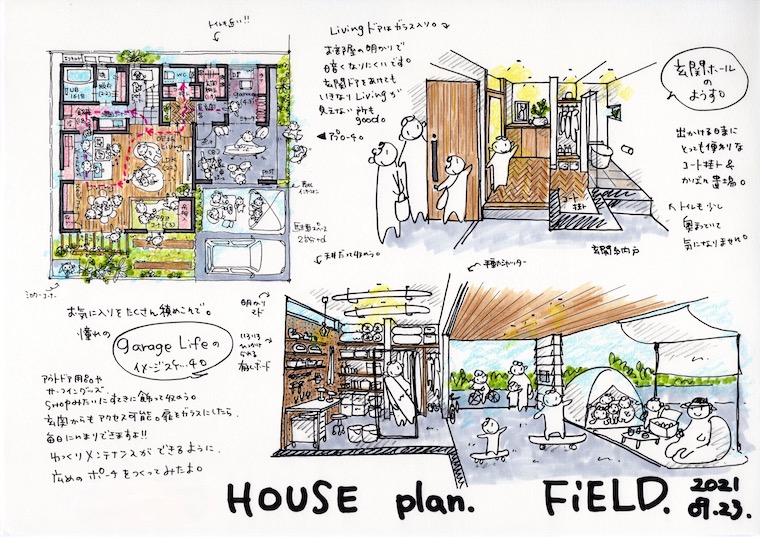 トイレも近い!!
Living ドアはガラス入り。
お部屋の明かりで
暗くなりにくいです。
玄関ドアをあけても
いきなり Livingが
見えない所も
good。
◀アプローチ。
玄関ホール
の
ようす。
出かける時に
とっても便利な
コート掛け&
かばん置場。
トイレも少し
奥まっていて
気になりません。
コート
掛け
玄関台内戸
UB
1618
WC
garage
Living
POST
駐車スペース
2台
天井だって収めう。
手動シャッター
お気に入りをたくさん積めこんで。
憧れの
garage Lifeの
イメージスケッチ
明かり
マド
アウトドア用品や
サーフィングッズ。
SHOPみたいにすてきに飾って収めう。
玄関からもアクセス可能。扉をガラスにしたら、
毎日にんまりできますよ!!
ゆっくりメンテナンスができるように、
広めの ポーチをつくってみたよ。
HOUSE plan. FiELD.
2021
09.23.